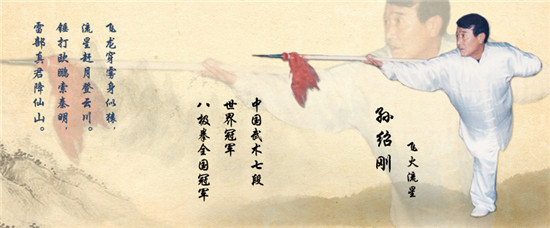 飞龙穿雾身似猿，
流星赶月登云川。
锤打欧鹏索秦明，
雷部真君降仙山。
中国武术七段
世界冠军
八极拳全国冠军
孙绍刚
飞火流星